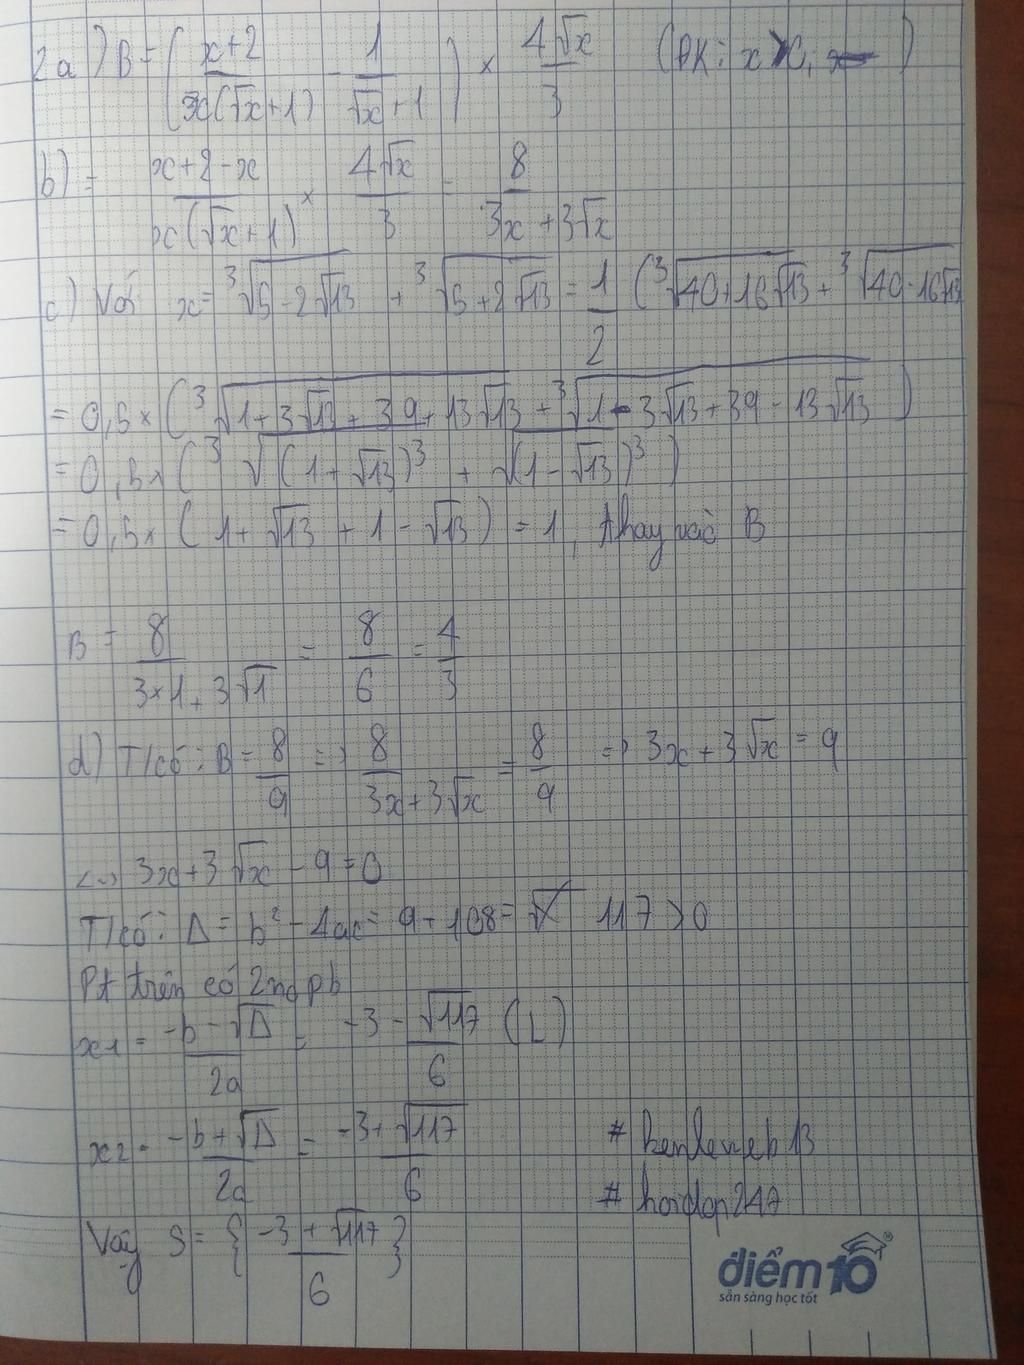 2a) B = ( x+2 / x(√x+1) - 1 / √x+1 ) × 4√x / 3 (ĐK: x > 0, )
b) = x+2-x / x(√x+1) × 4√x / 3 = 8 / 3x+3√x
c) Với x = ³√5-2√13 + ³√5+2√13 = 1/2 (³√40+16√13 + ³√40-16√13
= 0,5 × (³√1+3√13+39+13√13 + ³√1-3√13+39-13√13 )
= 0,5 × (³√(1+√13)³ + √(1-√13)³ )
= 0,5 × ( 1+√13 + 1-√13 ) = 1, thay vào B
B = 8 / 3×1+3√1 = 8/6 = 4/3
d) T/có: B = 8/9 => 8 / 3x+3√x = 8/9 => 3x+3√x = 9
<=> 3x+3√x - 9 = 0
T/có: Δ = b² - 4ac = 9+108 = 117 > 0
Pt trên có 2 no pb
x1 = -b-√Δ / 2a = -3-√117 / 6 (L)
x2 = -b+√Δ / 2a = -3+√117 / 6
Vậy S = { -3+√117 / 6 }
# hoidap247
điểm10®
sẵn sàng học tốt